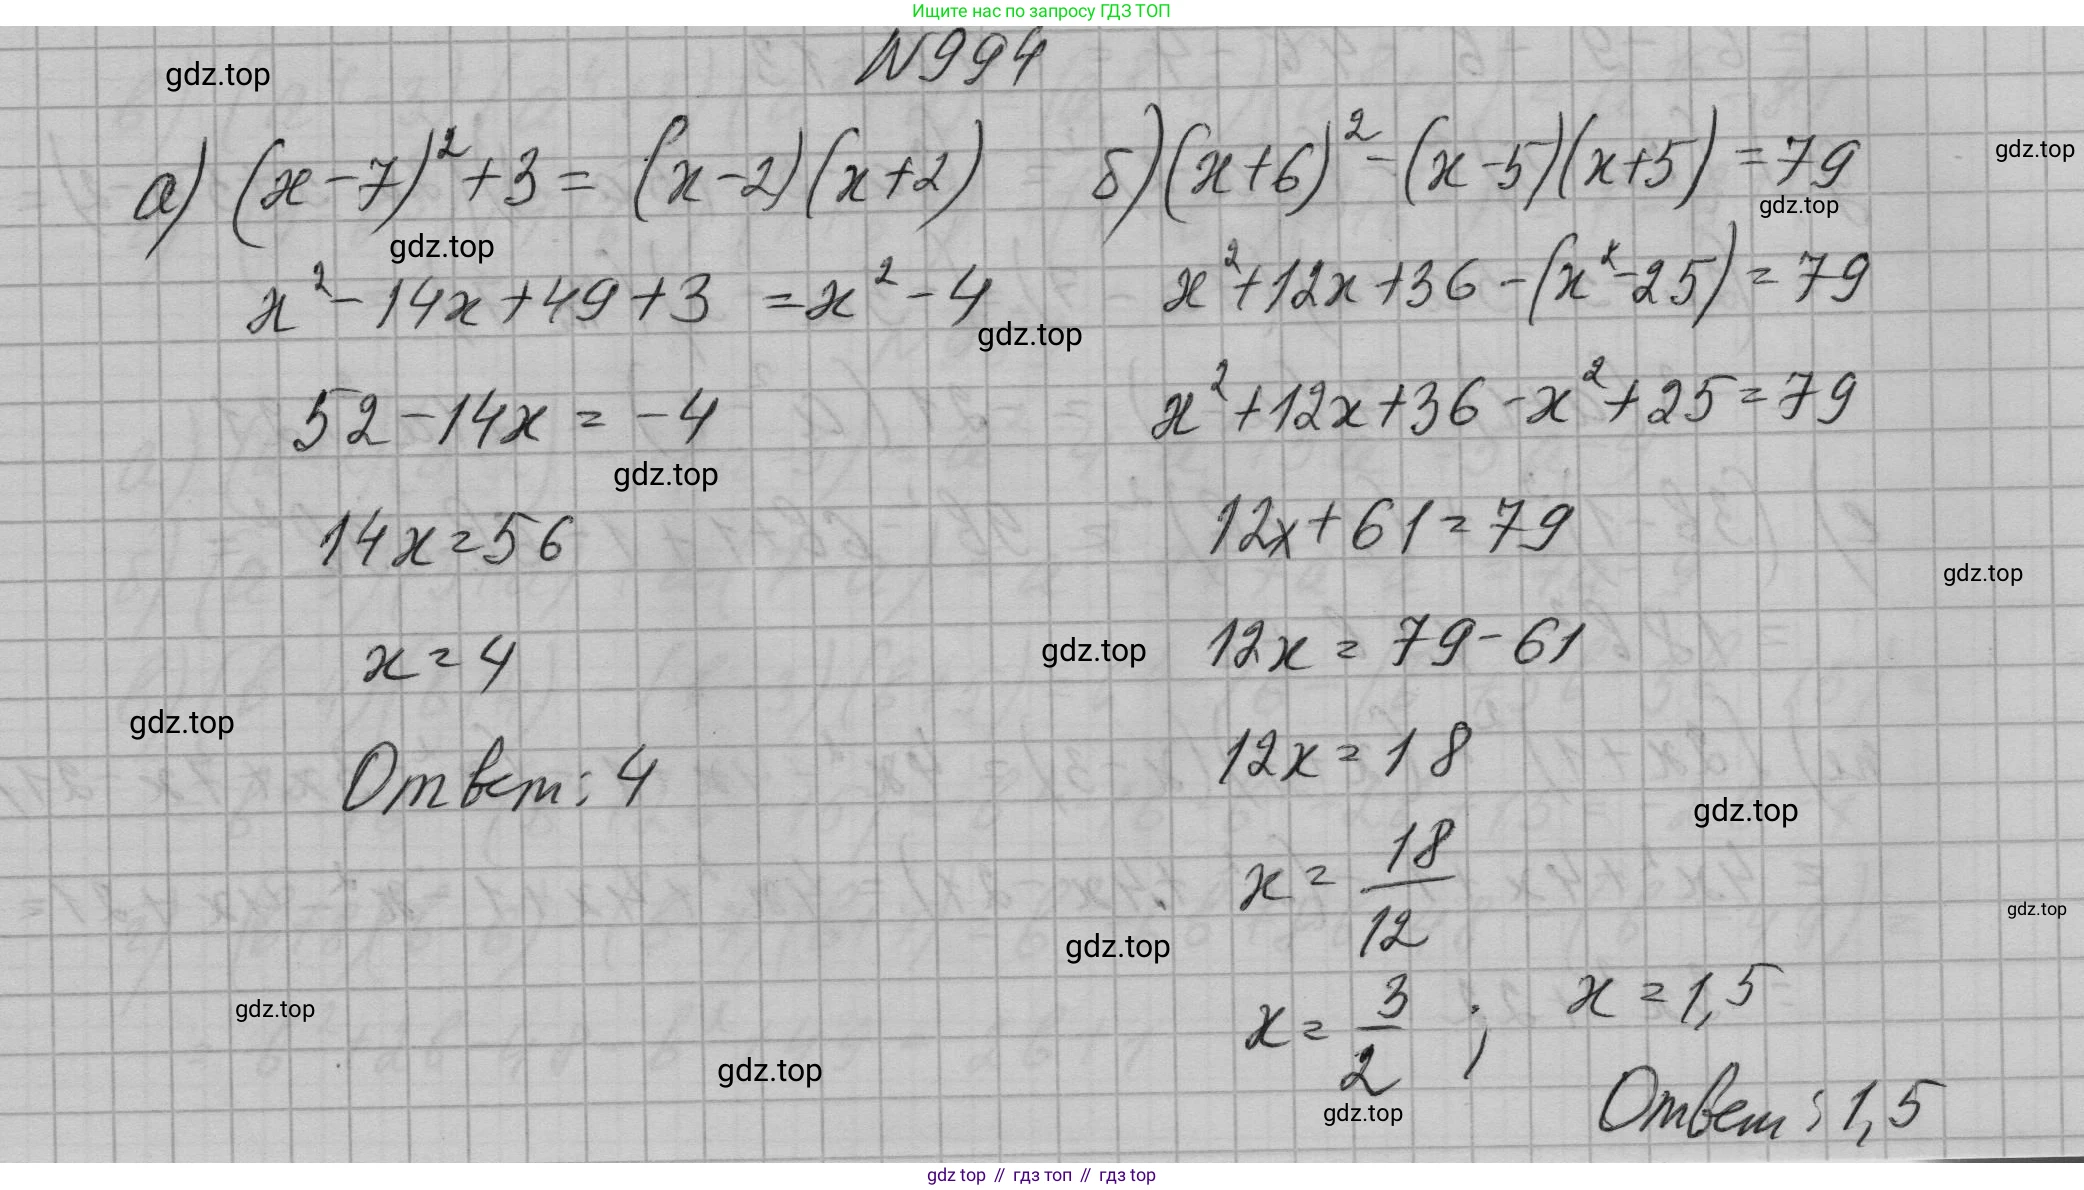 Ищите нас по запросу ГДЗ ТОП
N994
gdz.top
а) (x-7)²+3= (x-2)(x+2)
gdz.top
x²-14x+49+3 =x²-4
gdz.top
52-14x = -4
gdz.top
14x=56
x=4
gdz.top
Ответ: 4
gdz.top
gdz.top
б) (x+6)²-(x-5)(x+5) =79
gdz.top
gdz.top
x²+12x+36-(x²-25)=79
x²+12x+36-x²+25=79
12x+61=79
gdz.top
gdz.top
12x = 79-61
12x=18
gdz.top
x = 18/12
gdz.top
gdz.top
x = 3/2 ; x=1,5
gdz.top
Ответ: 1,5
gdz.top // гдз топ // гдз top